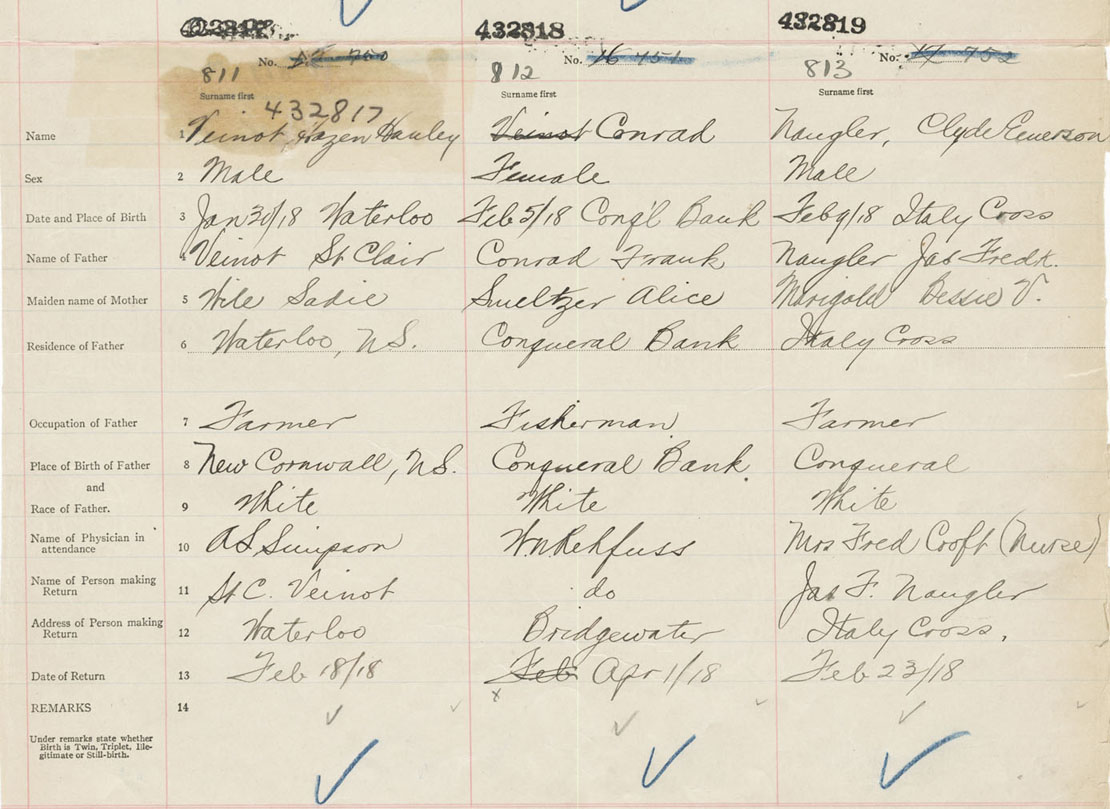 432818 432819
No. 16 751 No. 17 752
811 812 813
Surname first Surname first Surname first
432817
Name 1 Veinot, Hazen Hanley Veinot Conrad Naugler, Clyde Emerson
Sex 2 Male Female Male
Date and Place of Birth 3 Jan 30/18 Waterloo Feb 5/18 Conq'l Bank Feb 9/18 Italy Cross
Name of Father 4 Veinot St Clair Conrad Frank Naugler Jas Fredk.
Maiden name of Mother 5 Wile Sadie Smeltzer Alice Marigold Bessie V.
Residence of Father 6 Waterloo, N.S. Conqueral Bank Italy Cross
Occupation of Father 7 Farmer Fisherman Farmer
Place of Birth of Father 8 New Cornwall, N.S. Conqueral Bank Conqueral
and
Race of Father. 9 White White White
Name of Physician in
attendance 10 A S Simpson Wm Rehfuss Mrs Fred Croft (Nurse)
Name of Person making
Return 11 St C. Veinot do Jas F. Naugler
Address of Person making
Return 12 Waterloo Bridgewater Italy Cross.
Date of Return 13 Feb 18/18 Feb Apr 1/18 Feb 23/18
REMARKS 14
Under remarks state whether
Birth is Twin, Triplet, Ille-
gitimate or Still-birth.